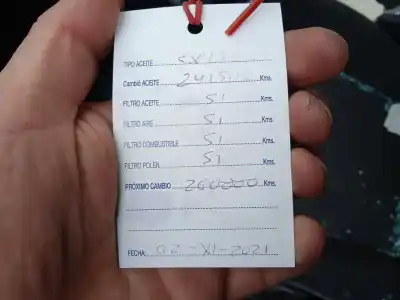 TIPO ACEITE
Cambió ACEITE Kms.
FILTRO ACEITE SI Kms.
FILTRO AIRE SI Kms.
FILTRO COMBUSTIBLE SI Kms.
FILTRO POLEN SI Kms.
PRÓXIMO CAMBIO 260000 Kms.
FECHA: 02-XI-2021